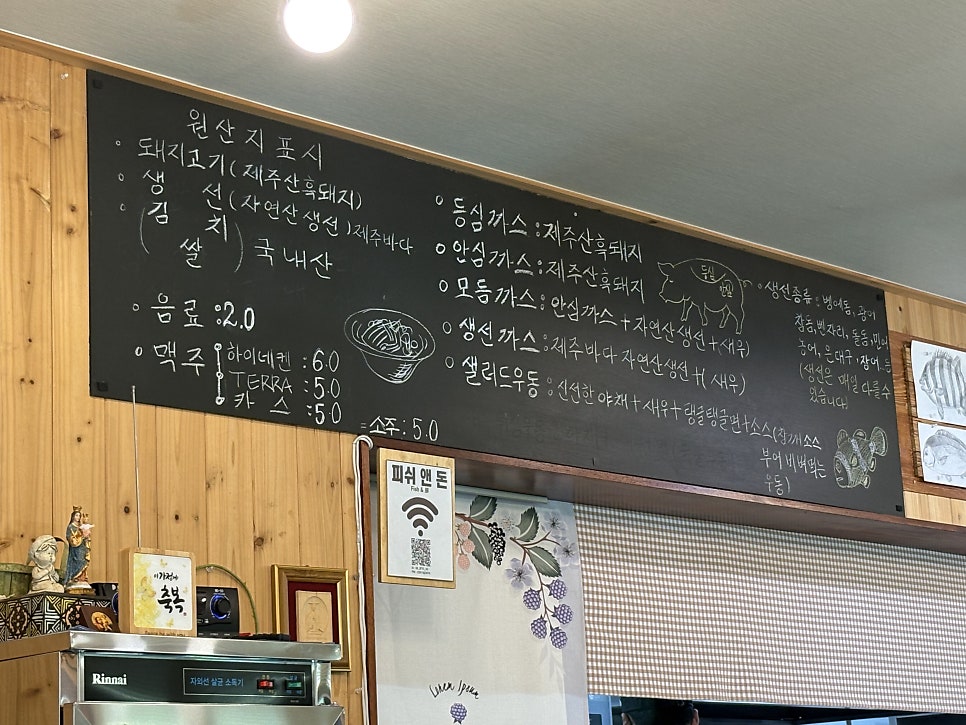 원산지표시
◦ 돼지고기(제주산흑돼지)
◦ 생 선(자연산생선)제주바다
◦ (김 치
쌀) 국내산
◦ 음료 : 2.0
◦ 맥주 하이네켄 : 6.0
TERRA : 5.0
카스 : 5.0
= 소주 : 5.0
◦ 등심까스 : 제주산흑돼지
◦ 안심까스 : 제주산흑돼지
◦ 모듬까스 : 안심까스+자연산생선+(새우)
◦ 생선까스 : 제주바다 자연산생선+(새우)
◦ 샐러드우동 : 신선한 야채+새우+탱글탱글면+소스(참깨소스
부어 비벼먹는
우동)
등심
안심
◦ 생선종류 : 벵에돔, 광어
참돔, 벤자리, 돌돔, 민어
농어, 은대구, 장어..등
(생선은 매일 다를수
있습니다)
피쉬 앤 돈
Fish & 豚
이 가정에
축복
Rinnai
자외선 살균 소독기
Lorem Ipsum